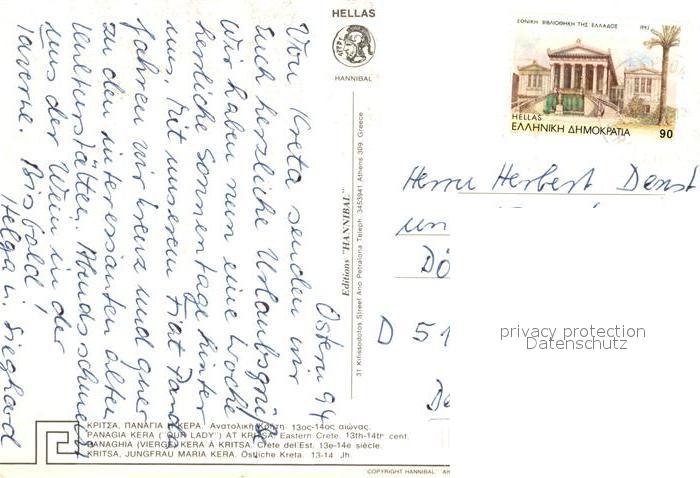 HELLAS
HANNIBAL
ΕΘΝΙΚΗ ΒΙΒΛΙΟΘΗΚΗ ΤΗΣ ΕΛΛΑΔΟΣ 1993
HELLAS
ΕΛΛΗΝΙΚΗ ΔΗΜΟΚΡΑΤΙΑ 90
Ostern 94
Von Kreta senden wir
Euch herzliche Urlaubsgrüße
Wir haben nun eine Woche
herrliche Sonnentage hinter
uns. Mit unserem Fiat Panda
fahren wir kreuz und quer
zu den interessanten alten
Kulturstätten. Abends schmeckt
uns der Wein in der
Taverne. Bis bald
Helga u. Sieghard
Editions "HANNIBAL"
31 Kirissodotos Street Ano Petralona Teleph. 3453941 Athens 309, Greece
Herrn Herbert Denst
un
Dö
D 51
De
privacy protection
Datenschutz
ΚΡΙΤΣΑ, ΠΑΝΑΓΙΑ Η ΚΕΡΑ. Ανατολική Κρήτη. 13ος-14ος αιώνας.
PANAGIA KERA ("OUR LADY") AT KRITSA, Eastern Crete. 13th-14th cent.
PANAGHIA (VIERGE) KERA À KRITSA. Crète del'Est. 13e-14e siècle.
KRITSA, JUNGFRAU MARIA KERA. Östliche Kreta. 13-14 Jh.
COPYRIGHT HANNIBAL